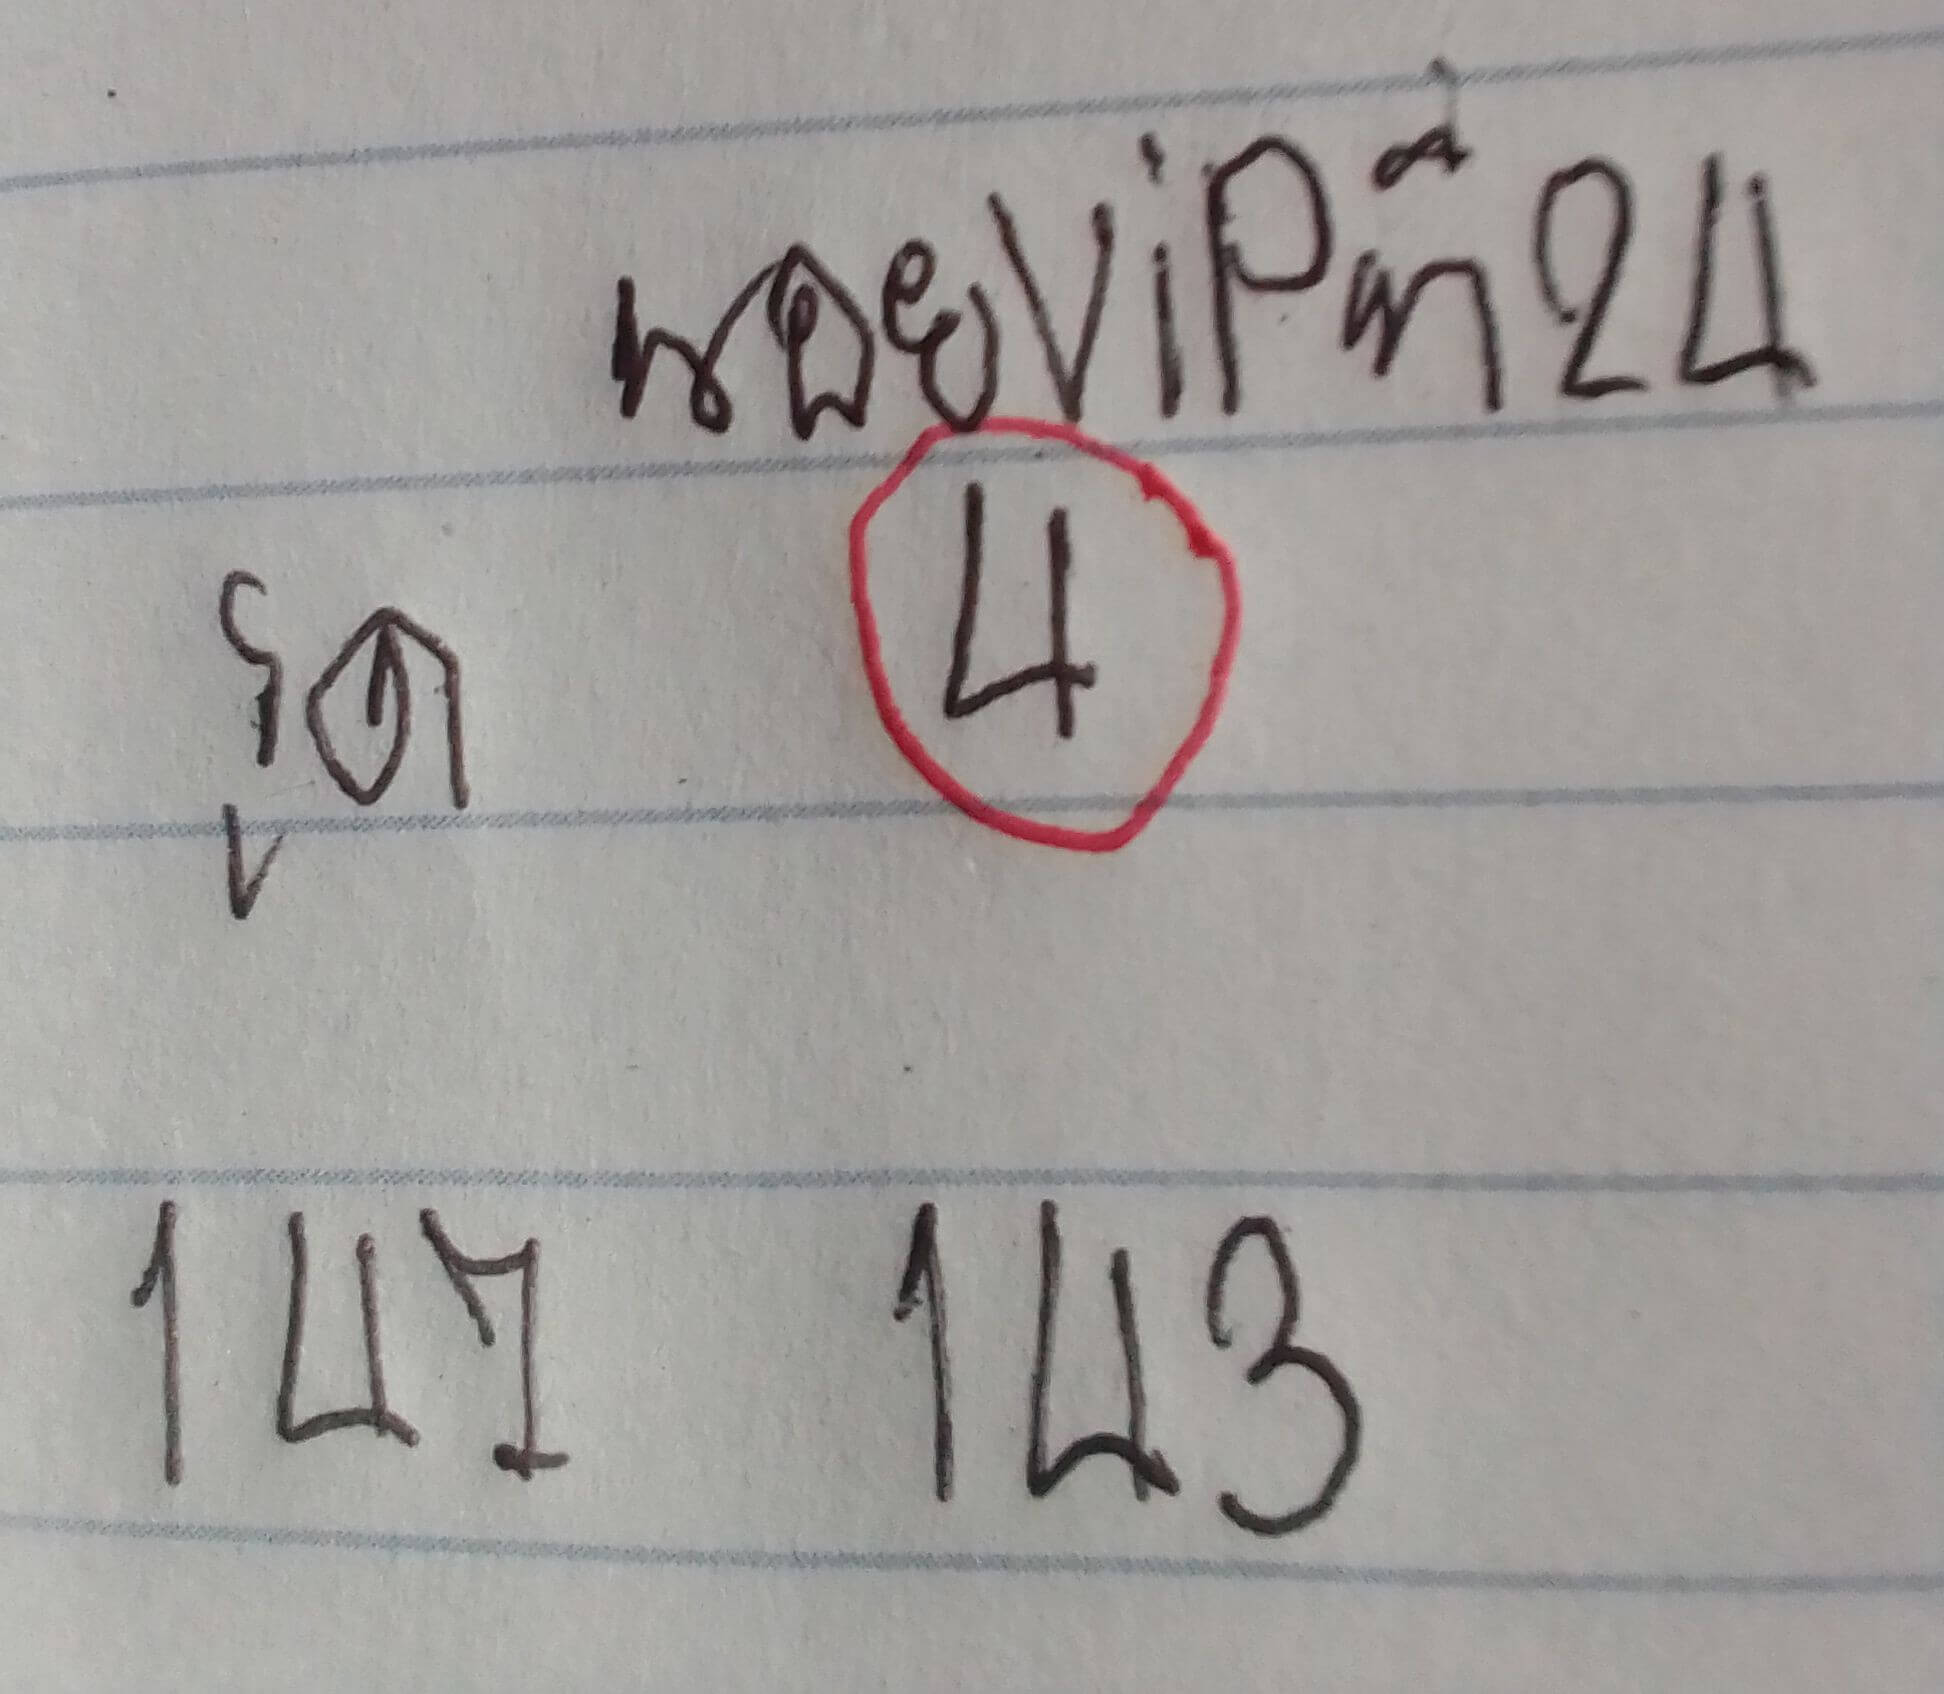 หวยViPที่24
4
รูด
147 143